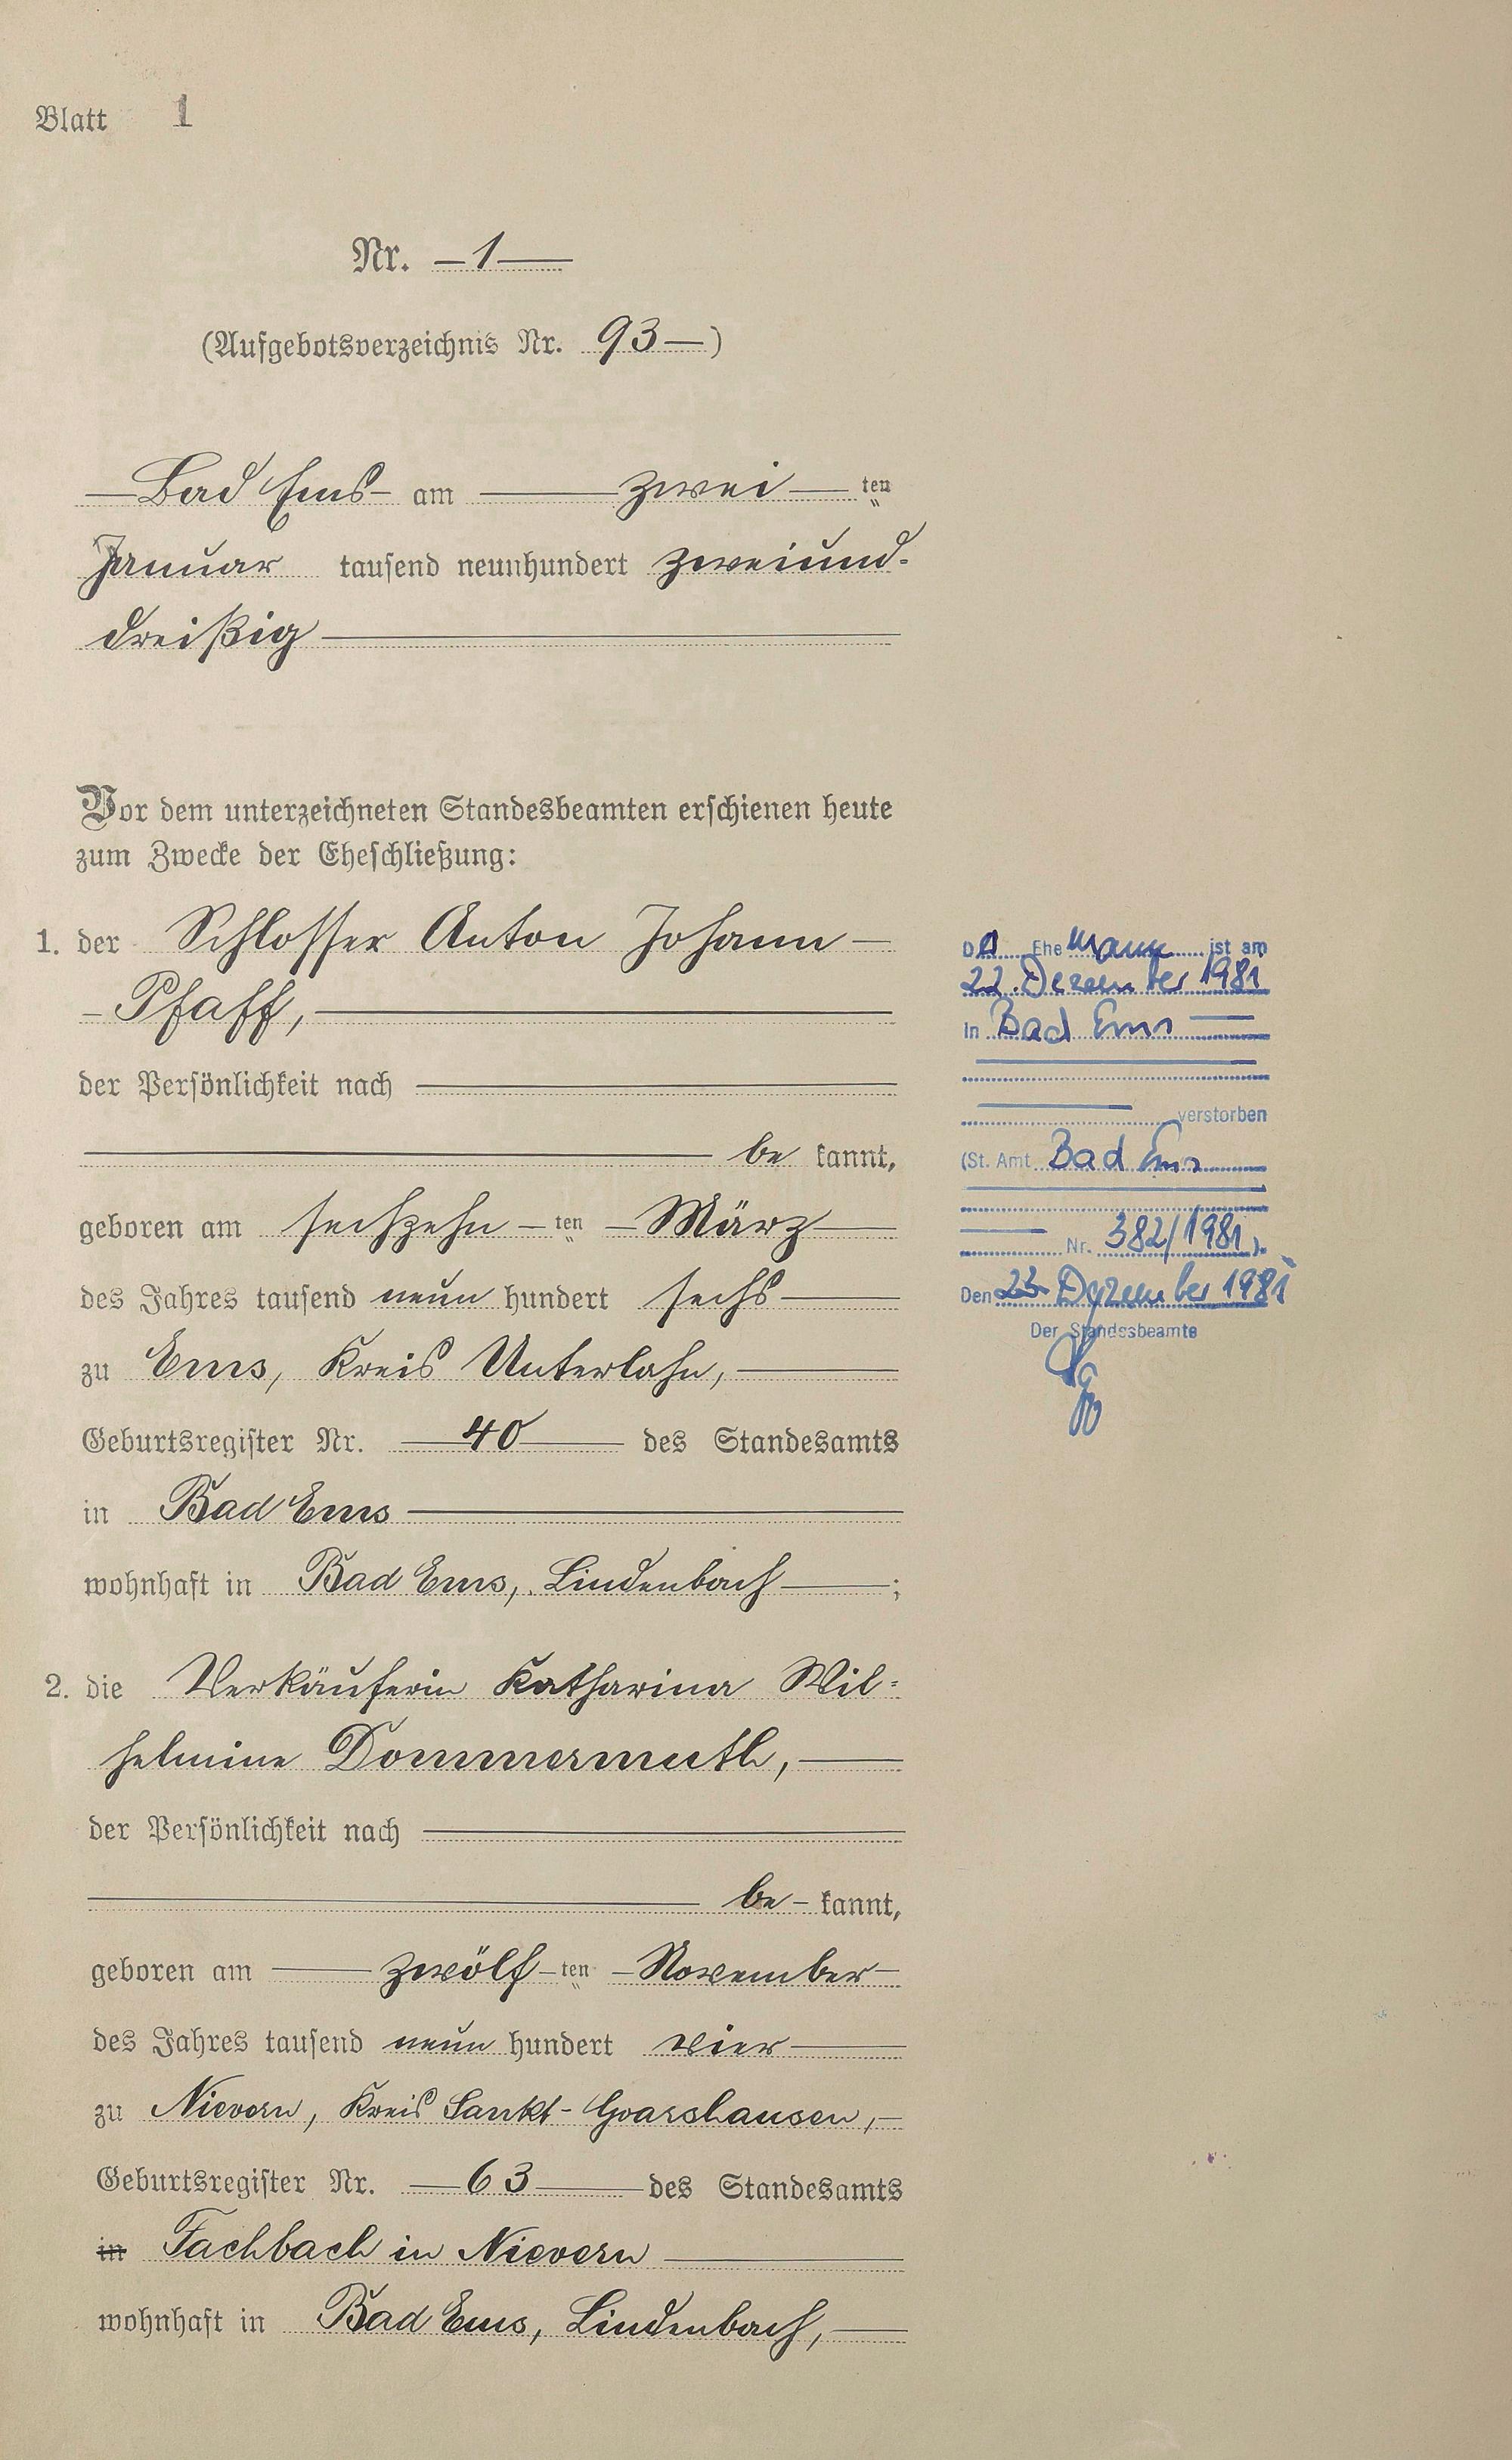 Blatt 1
Nr. 1
(Aufgebotsverzeichnis Nr. 93)
Bad Ems am zwei ten
Januar tausend neunhundert zweiund-
dreißig
Vor dem unterzeichneten Standesbeamten erschienen heute
zum Zwecke der Eheschließung:
1. der Schlosser Anton Johann
Pfaff,
der Persönlichkeit nach
be kannt,
geboren am sechzehn ten März
des Jahres tausend neun hundert sechs
zu Ems, Kreis Unterlahn,
Geburtsregister Nr. 40 des Standesamts
in Bad Ems
wohnhaft in Bad Ems, Lindenbach ;
2. die Verkäuferin Katharina Wil-
helmine Dommermuth,
der Persönlichkeit nach
be kannt,
geboren am zwölf ten November
des Jahres tausend neun hundert vier
zu Nievern, Kreis Sankt-Goarshausen,
Geburtsregister Nr. 63 des Standesamts
in Fachbach in Nievern
wohnhaft in Bad Ems, Lindenbach,
Der Ehemann ist am
22. Dezember 1981
in Bad Ems
verstorben
(St. Amt Bad Ems
Nr. 382/1981).
Den 23. Dezember 1981
Der Standesbeamte